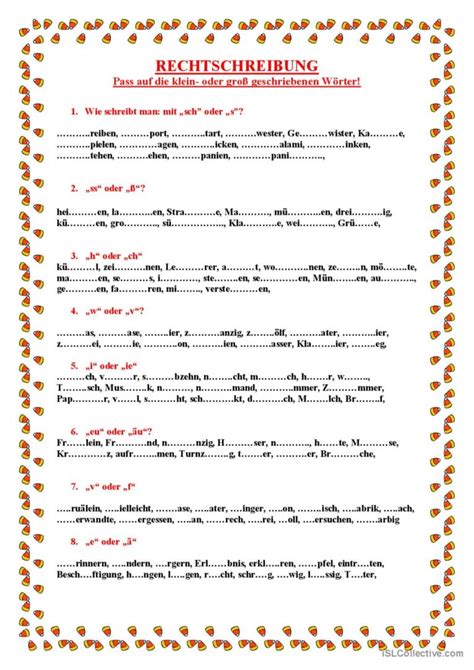 RECHTSCHREIBUNG
Pass auf die klein- oder groß geschriebenen Wörter!
1. Wie schreibt man: mit „sch" oder „s"?
……….reiben, ………port, ………tart, ………wester, Ge………wister, Ka………e,
………pielen, …………agen, ……….icken, ………alami, …………inken,
………tehen, ………ehen, ………panien, ………pani………,
2. „ss" oder „ß"?
hei………en, la……….en, Stra………e, Ma………, mü………en, drei………ig,
kü………en, gro………, sü………, Kla………e, wei………, Grü……e,
3. „h" oder „ch"
kü………l, zei………nen, Le………rer, a………t, wo………nen, ze……n, mö………te,
ma………en, se………s, i………nen, se………en, Mün………en, au………,
ge………en, fa………ren, mi……., verste………en,
4. „w" oder „v"?
………as, ………ase, ………ier, z………anzig, z………ölf, ………ater, ………ier,
z………ei, ………ie, ………on, ………ien, ………asser, Kla………ier, ………eg,
5. „i" oder „ie"
………ch, v………r, s………bzehn, n………cht, m………ch, h………r, w………r,
T………sch, Mus………k, n………mand, ………mmer, Z………mmer,
Pap………r, v………l, v………lleicht, s………, d………ch, M………lch, Br……f,
6. „eu" oder „äu"?
Fr……lein, Fr……nd, n……nzig, H……ser, n………, h……te, M……se,
Kr………z, aufr……men, Turnz……g, t……er, ………er, Br……che,
7. „v" oder „f"
…..ruälein, ….ielleicht, ……ase, ….ater, ….inger, ….on, ….isch, ….abrik, ….ach,
……erwandte, ….ergessen, ….an, ….rech, ….rei, ….oll, ….ersuchen, ……arbig
8. „e" oder „ä"
……rinnern, ….ndern, ….rgern, Erl……bnis, erkl…..ren, ….pfel, eintr….ten,
Besch….ftigung, h….ngen, l…..gen, r….cht, schr….g, w….lig, l…..ssig, T….ter,
iSLCollective.com